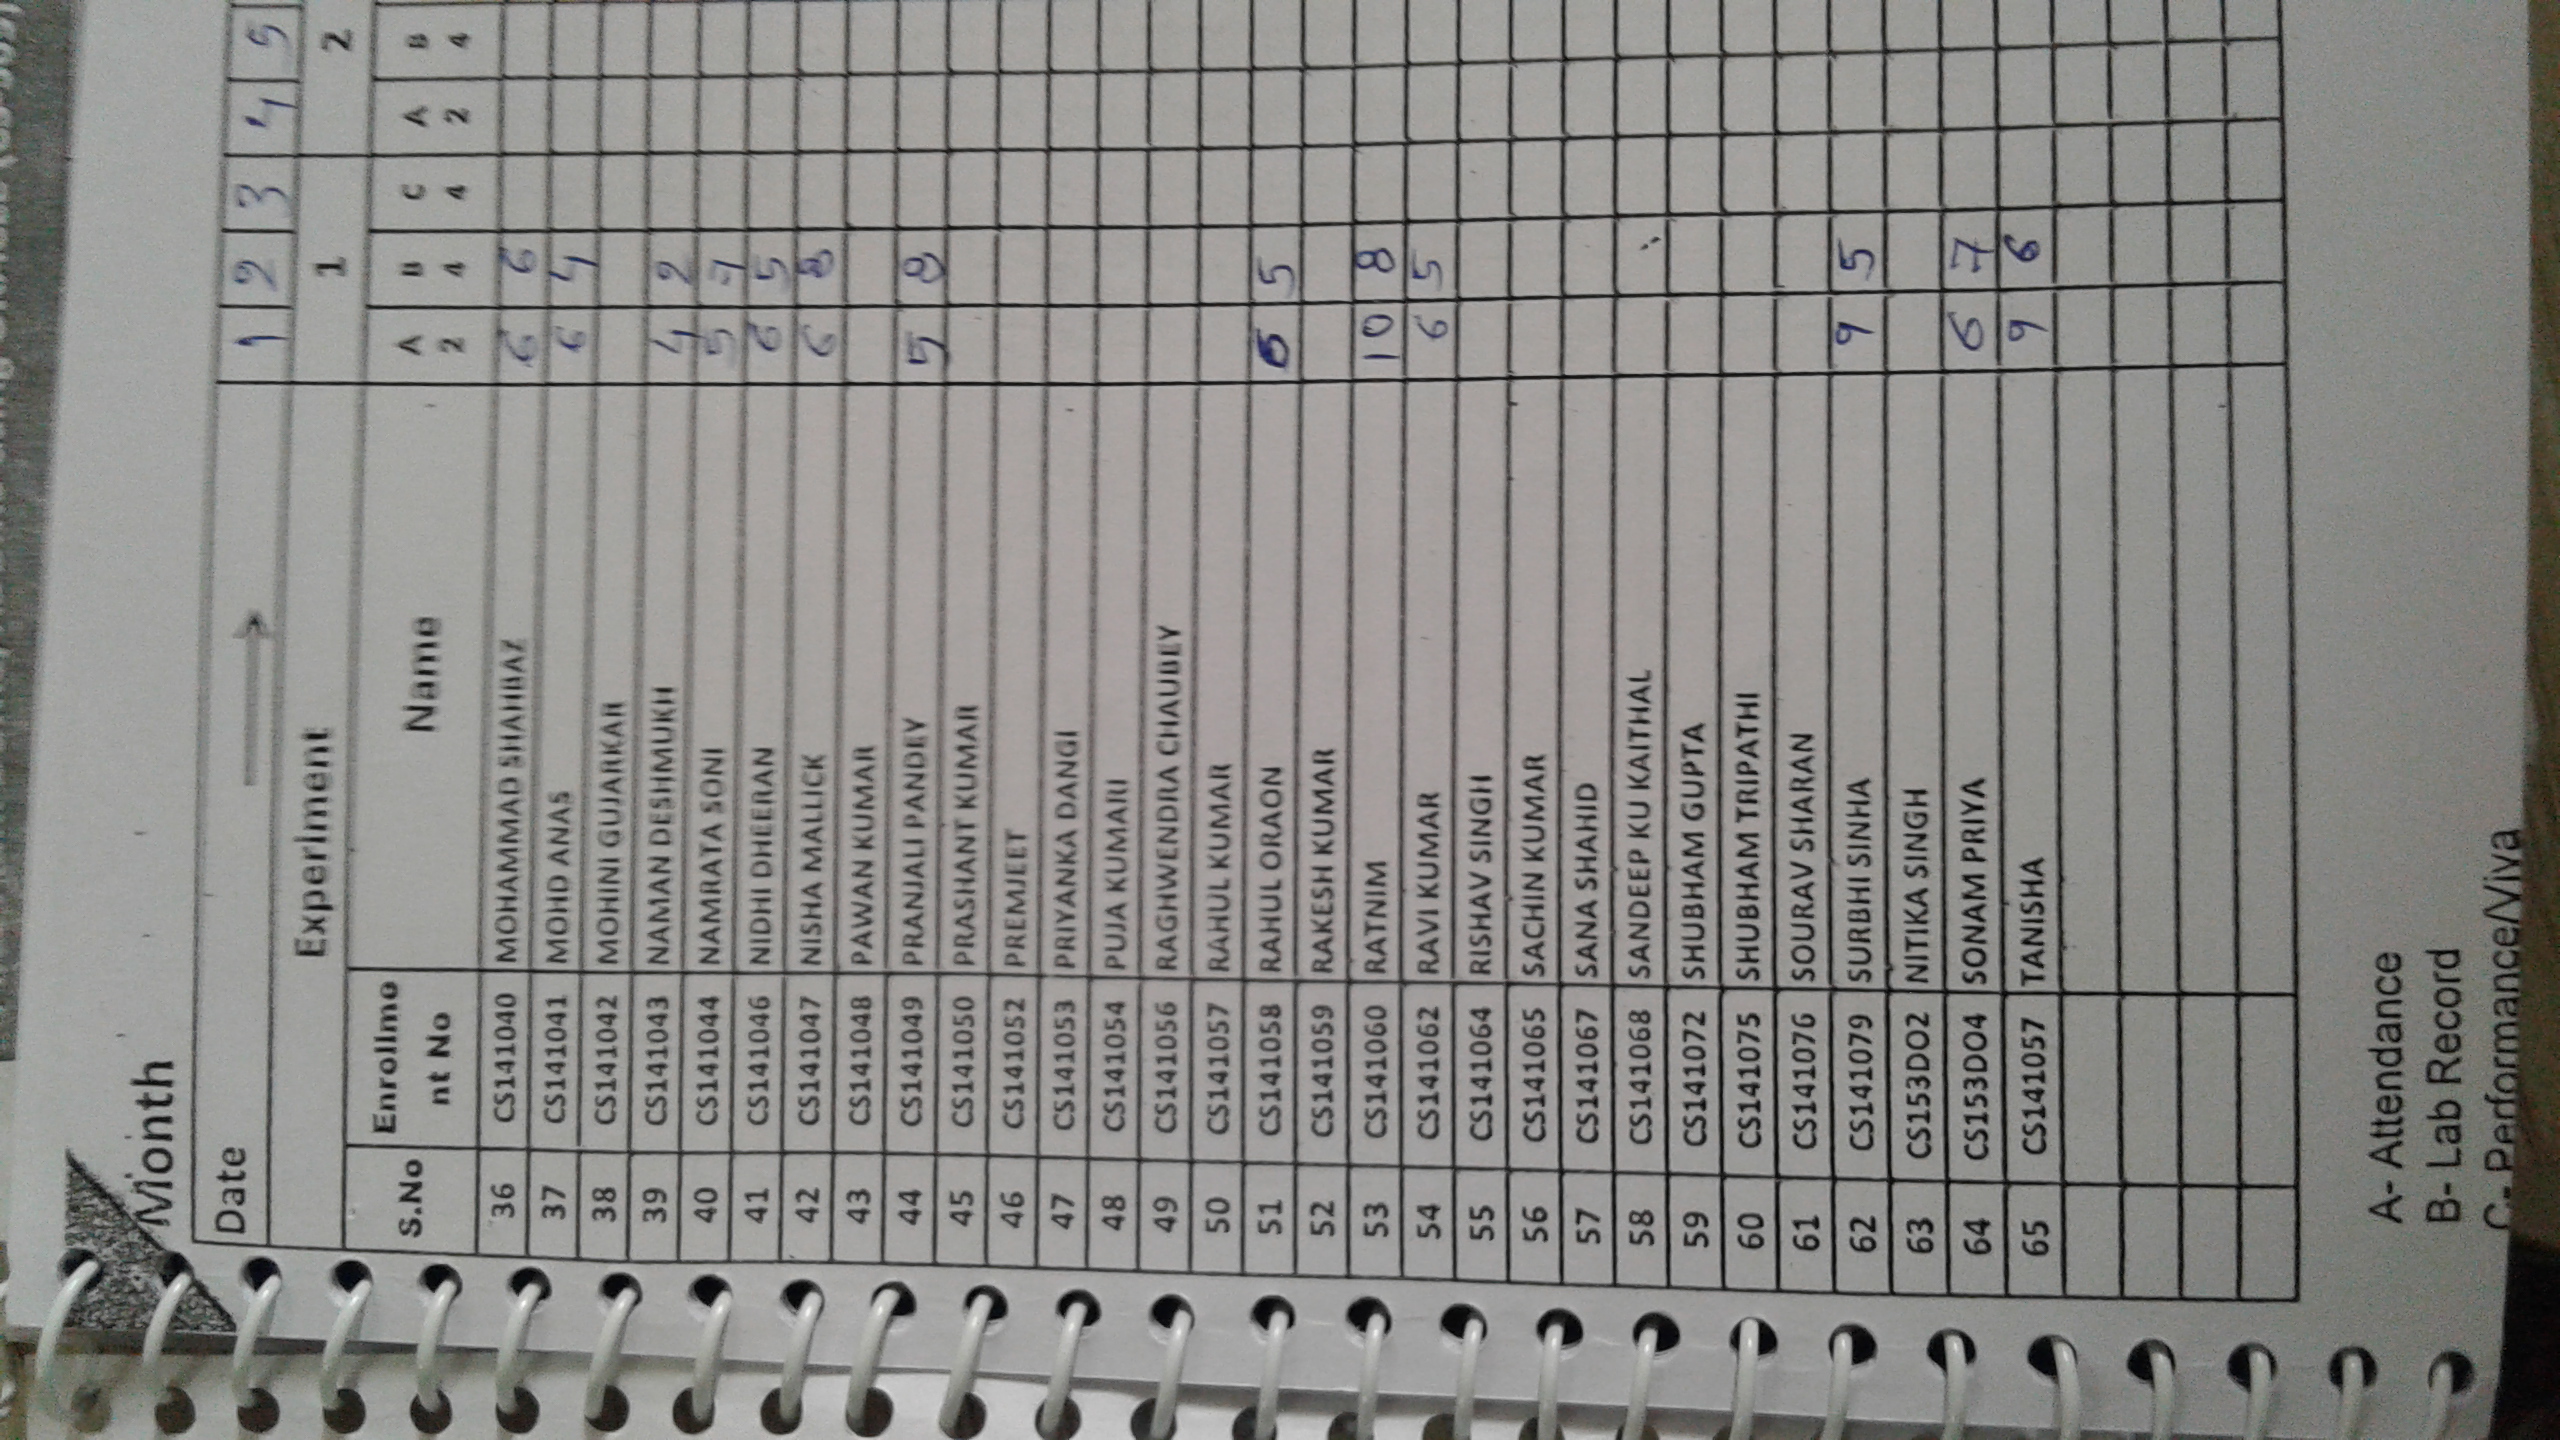 Month
Date 1 2 3 4 5
Experiment 1 2
S.No Enrollme nt No Name A 2 B 4 C 4 A 2 B 4
36 CS141040 MOHAMMAD SHAHBAZ 6 6
37 CS141041 MOHD ANAS 6 4
38 CS141042 MOHINI GUJARKAR
39 CS141043 NAMAN DESHMUKH 4 2
40 CS141044 NAMRATA SONI 5
41 CS141046 NIDHI DHEERAN 6 5
42 CS141047 NISHA MALLICK 6 8
43 CS141048 PAWAN KUMAR
44 CS141049 PRANJALI PANDEY 5 8
45 CS141050 PRASHANT KUMAR
46 CS141052 PREMJEET
47 CS141053 PRIYANKA DANGI
48 CS141054 PUJA KUMARI
49 CS141056 RAGHWENDRA CHAUBEY
50 CS141057 RAHUL KUMAR
51 CS141058 RAHUL ORAON 5
52 CS141059 RAKESH KUMAR
53 CS141060 RATNIM 10 8
54 CS141062 RAVI KUMAR 6 5
55 CS141064 RISHAV SINGH
56 CS141065 SACHIN KUMAR
57 CS141067 SANA SHAHID
58 CS141068 SANDEEP KU KAITHAL
59 CS141072 SHUBHAM GUPTA
60 CS141075 SHUBHAM TRIPATHI
61 CS141076 SOURAV SHARAN
62 CS141079 SURBHI SINHA 9 5
63 CS153DO2 NITIKA SINGH
64 CS153DO4 SONAM PRIYA 6 7
65 CS141057 TANISHA 9 6
A- Attendance
B- Lab Record
C- Performance/Viva